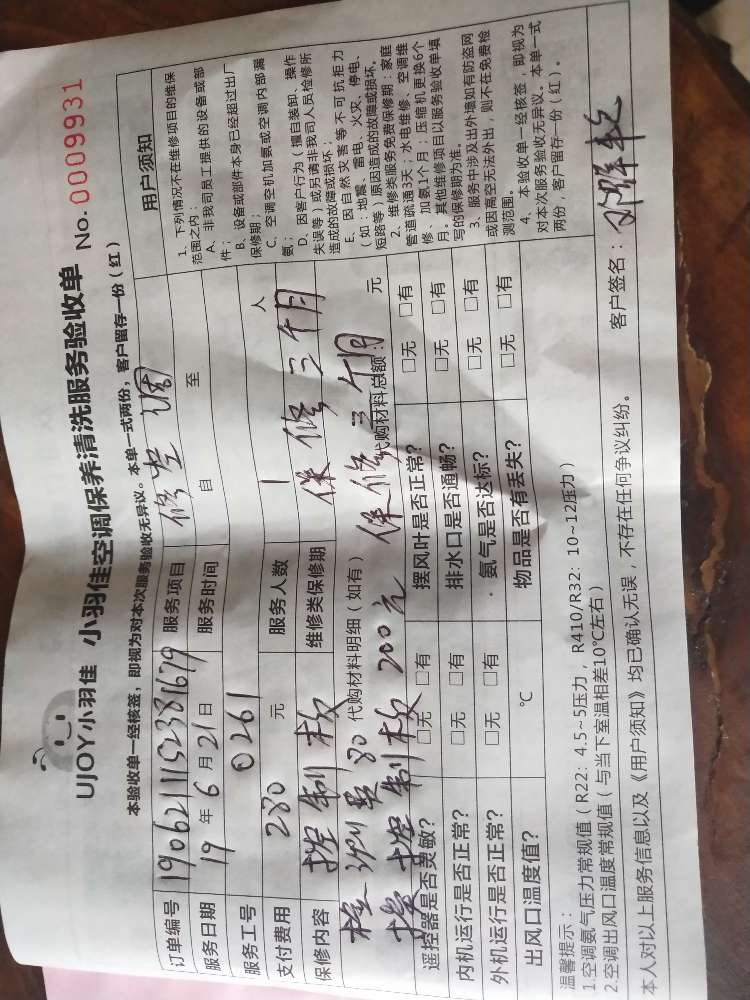 UJOY小羽佳 小羽佳空调保养清洗服务验收单 No. 0009931
本验收单一经核签，即视为对本次服务验收无异议。本单一式两份，客户留存一份（红）
订单编号 1906211152381679 服务项目 修空调
服务日期 19 年 6 月 21 日 服务时间 自 至
服务工号 0261
支付费用 280 元 服务人数 1 人
保修内容 控制板 维修类保修期 保修三个月
代购材料明细（如有） 代购材料总额： 元
检测费80
换控制板200元 保修三个月
遥控器是否灵敏？ □无 □有 摆风叶是否正常？ □无 □有
内机运行是否正常？ □无 □有 排水口是否通畅？ □无 □有
外机运行是否正常？ □无 □有 氨气是否达标？ □无 □有
出风口温度值？ ℃ 物品是否有丢失？ □无 □有
用户须知
1、下列情况不在维修项目的维保
范围之内：
A、非我司员工提供的设备或部
件；
B、设备或部件本身已经超过出厂
保修期；
C、空调空机加氨或空调内部漏
氨；
D、因客户行为（擅自装卸、操作
失误等）或另请非我司人员检修所
造成的故障或损坏；
E、因自然灾害等不可抗拒力
（如：地震、雷电、火灾、停电、
短路等）原因造成的故障或损坏。
2、维修类服务免费保修期：家庭
管道疏通3天；水电维修、空调维
修、加氨1个月；压缩机更换6个
月。其他维修项目以服务验收单填
写的保修期为准。
3、服务中涉及出外墙如有防盗网
或因高空无法外出，则不在免费检
测范围。
4、本验收单一经核签，即视为
对本次服务验收无异议。本单一式
两份，客户留存一份（红）。
温馨提示：
1.空调氨气压力常规值（R22：4.5~5压力，R410/R32：10~12压力）
2.空调出风口温度常规值（与当下室温相差10℃左右）
本人对以上服务信息以及《用户须知》均已确认无误，不存在任何争议纠纷。 客户签名：